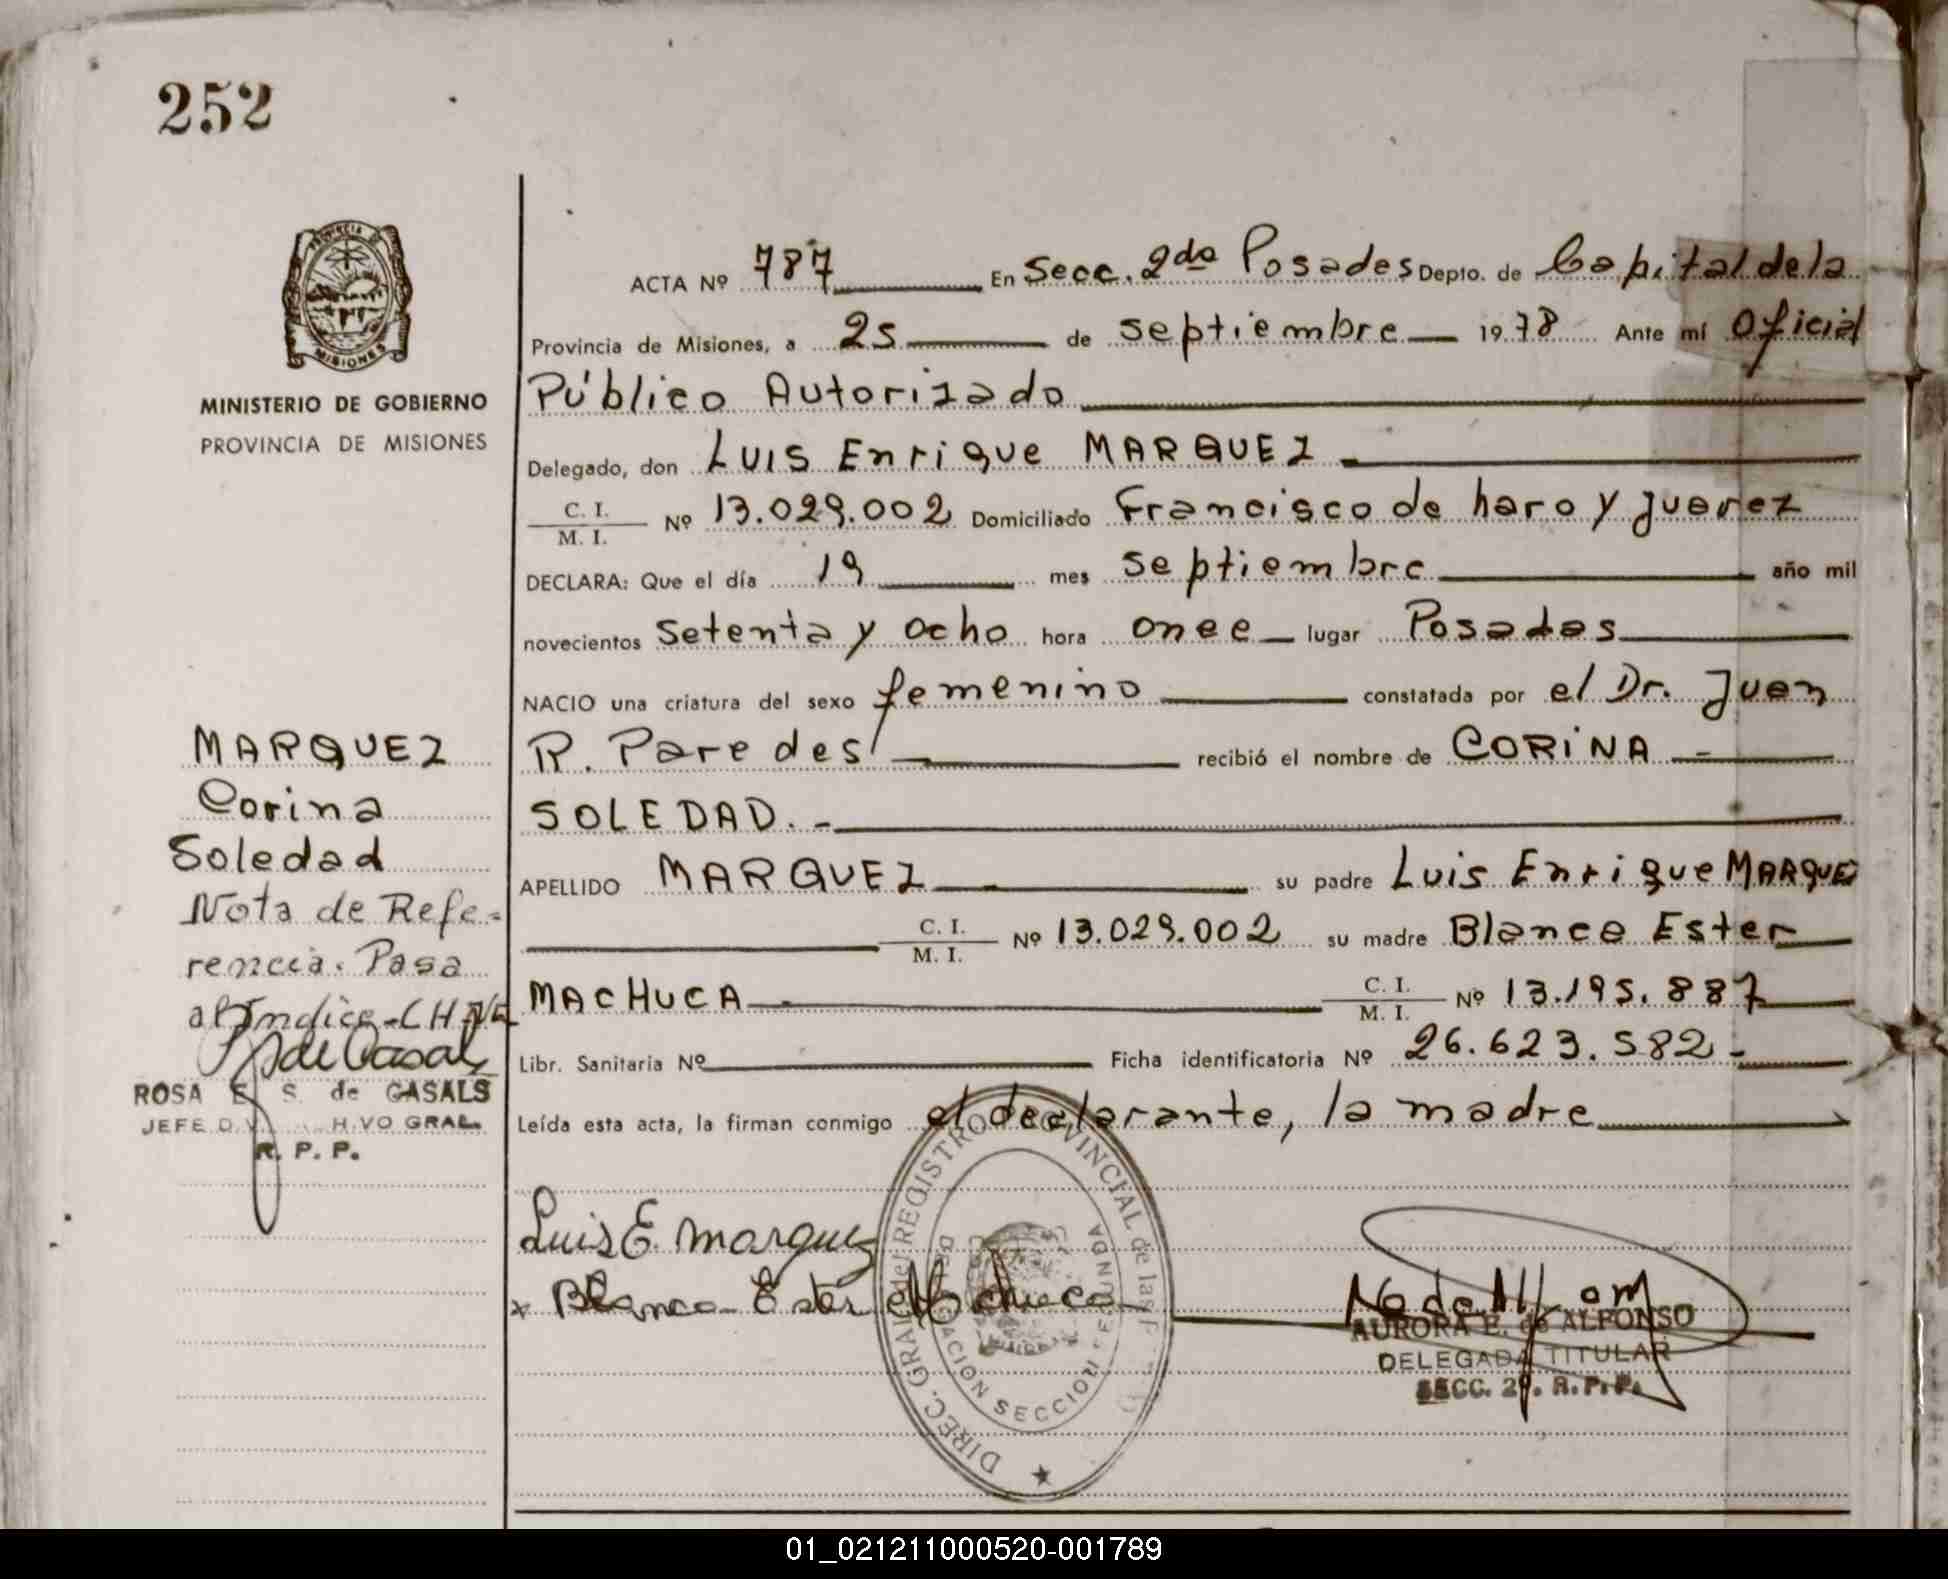 252
PROVINCIA DE
MISIONES
MINISTERIO DE GOBIERNO
PROVINCIA DE MISIONES
ACTA Nº 787 En Secc. 2da Posadas Depto. de Capital de la
Provincia de Misiones, a 25 de septiembre 1978 Ante mí Oficial
Público Autorizado
Delegado, don Luis Enrique MARQUEZ
C. I.
M. I. Nº 13.029.002 Domiciliado Francisco de haro y Juarez
DECLARA: Que el día 19 mes septiembre año mil
novecientos setenta y ocho hora once lugar Posadas
NACIO una criatura del sexo femenino constatada por el Dr. Juan
R. Paredes recibió el nombre de CORINA -
SOLEDAD. -
APELLIDO MARQUEZ su padre Luis Enrique MARQUEZ
C. I.
M. I. Nº 13.029.002 su madre Blanca Ester
MACHUCA C. I.
M. I. Nº 13.195.887
Libr. Sanitaria Nº Ficha identificatoria Nº 26.623.582 -
Leída esta acta, la firman conmigo el declarante, la madre
MARQUEZ
Corina
Soledad
Nota de Refe-
rencia. Pasa
al Indice
ROSA E. S. de CASALS
JEFE H.VO GRAL.
R. P. P.
Luis E. Marquez
x Blanca Ester Machuca
DIREC. GRAL. del REGISTRO PROVINCIAL de las P
DELEGACION SECCION SEGUNDA
MISIONES
AURORA E. de ALFONSO
DELEGADA TITULAR
SECC. 2ª. R.P.P.
01_021211000520-001789